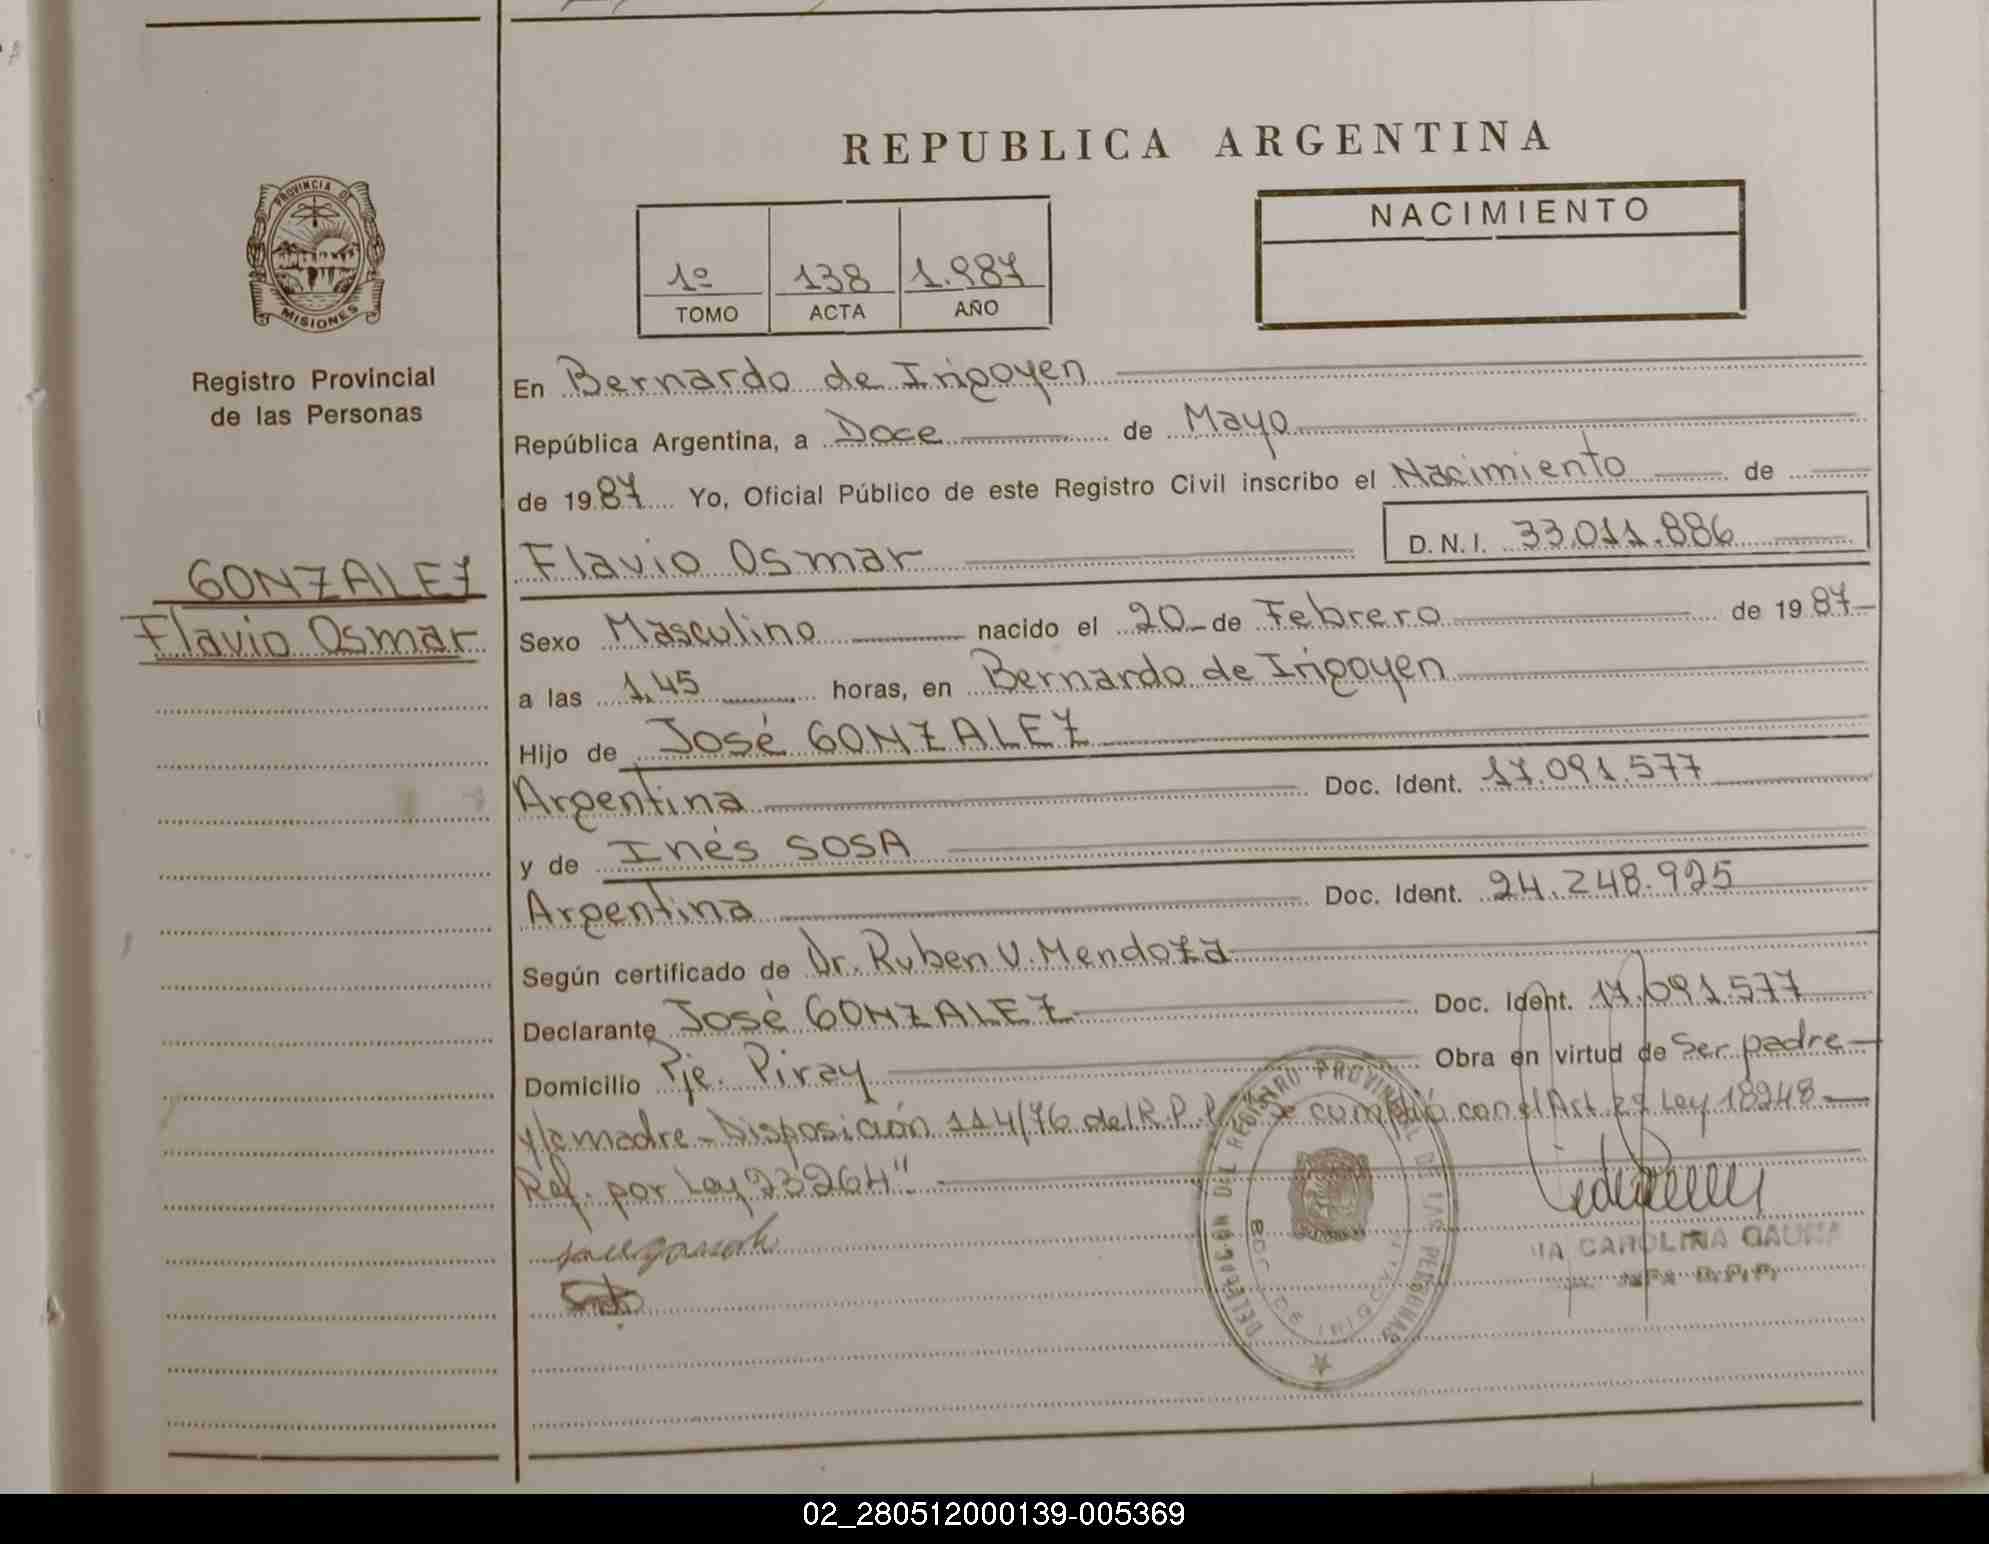 REPUBLICA ARGENTINA
PROVINCIA DE
MISIONES
Registro Provincial
de las Personas
GONZALEZ
Flavio Osmar
1º 138 1.987
TOMO ACTA AÑO
NACIMIENTO
En Bernardo de Irigoyen
República Argentina, a Doce de Mayo
de 1987 Yo, Oficial Público de este Registro Civil inscribo el Nacimiento de
Flavio Osmar D.N.I. 33.011.886
Sexo Masculino nacido el 20 de Febrero de 1987
a las 1,45 horas, en Bernardo de Irigoyen
Hijo de José GONZALEZ
Argentina Doc. Ident. 17.091.577
y de Inés SOSA
Argentina Doc. Ident. 24.248.925
Según certificado de Dr. Ruben V. Mendoza
Declarante José GONZALEZ Doc. Ident. 17.091.577
Domicilio Pje. Piray Obra en virtud de Ser padre
y/c madre - Disposición 114/76 del R.P.P. Se cumplió con el Art. 2º Ley 18248
Ref. por Ley 23264"
DELEGACION DEL REGISTRO PROVINCIAL DE LAS PERSONAS
CAROLINA
R.P.P.
02_280512000139-005369